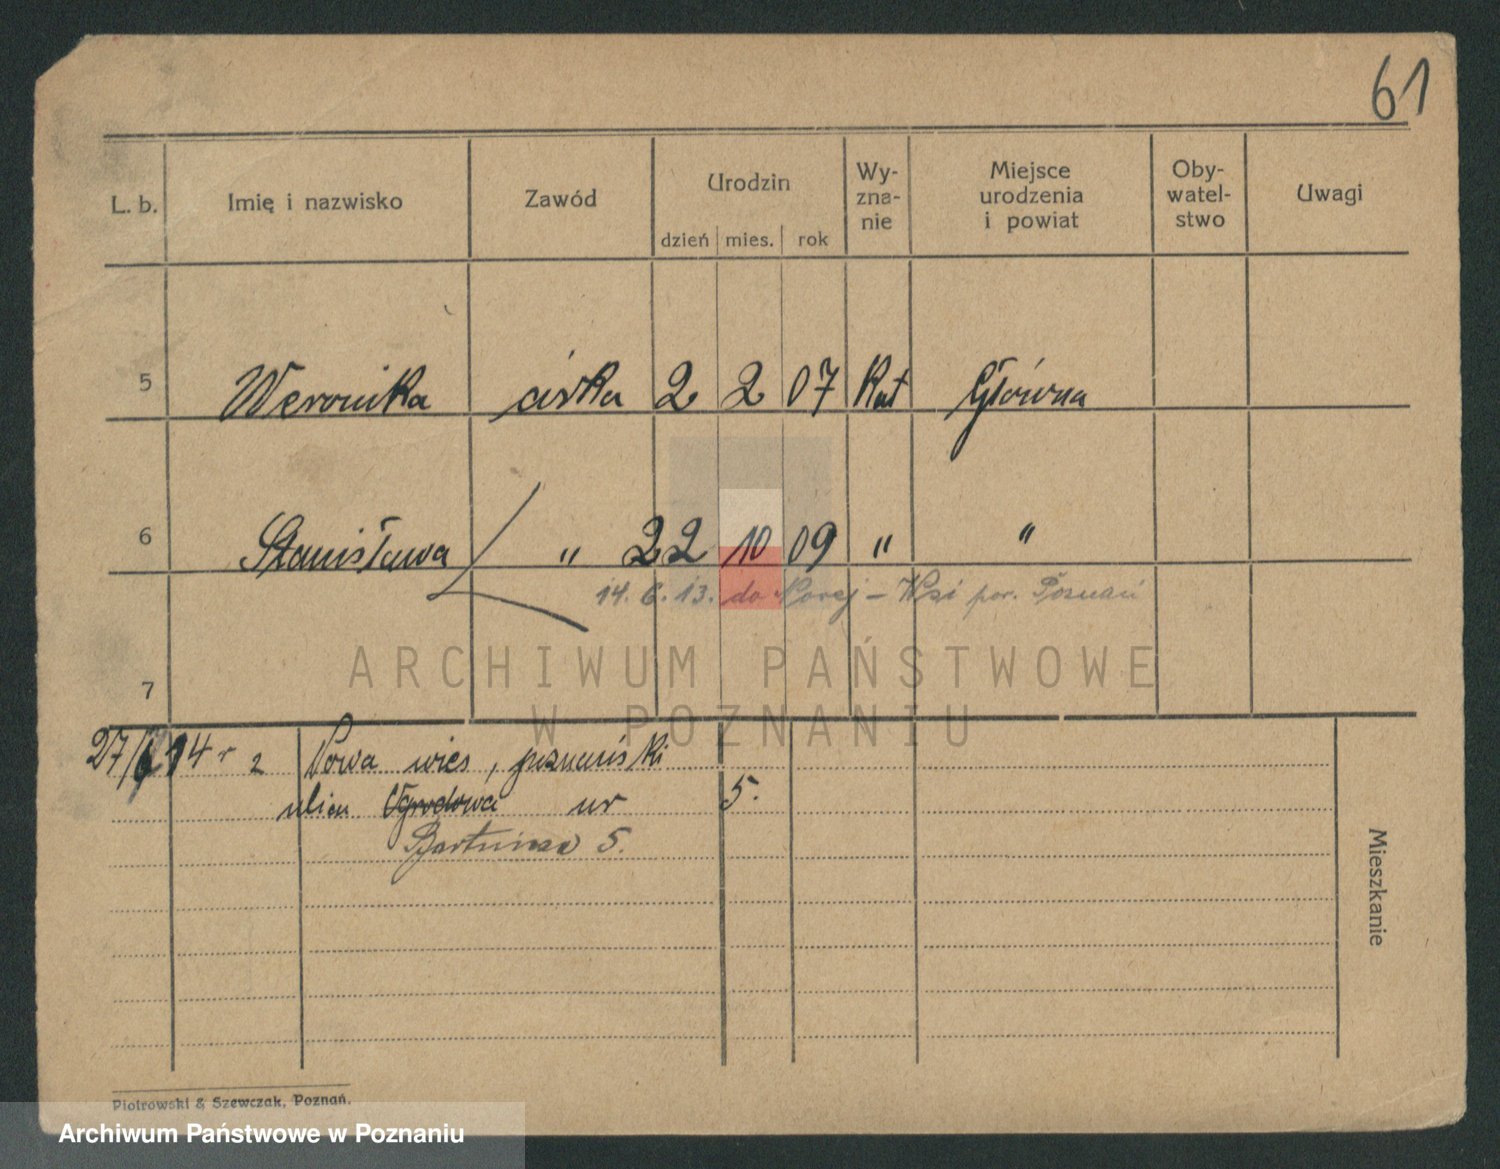 61
L. b. Imię i nazwisko Zawód Urodzin Wy-zna-nie Miejsce urodzenia i powiat Oby-watel-stwo Uwagi
dzień mies. rok
5 Weronika córka 2 2 07 Kat Główna
6 Stanisława " 22 10 09 " "
14. 6. 13. do Nowej - Wsi pow. Poznań
ARCHIWUM PAŃSTWOWE
7
W POZNANIU
27/6 14 r z Nowa wies, poznański
ulica Ogrodowa nr 5.
5.
Mieszkanie
Piotrowski & Szewczak, Poznań.
Archiwum Państwowe w Poznaniu